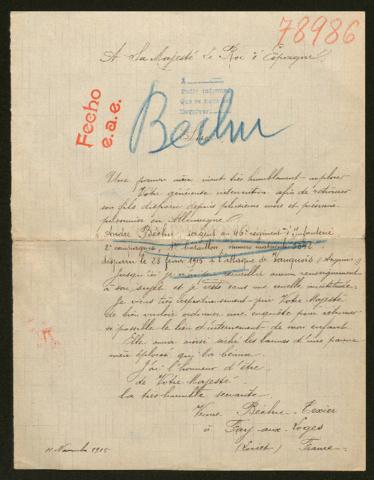 78986
A Sa Majesté le Roi d'Espagne
Fecho
e.a.e.
Pedir informes
Béchu
Sire
Une pauvre mère vient très humblement implorer
Votre généreuse intervention afin de retrouver
son fils disparu depuis plusieurs mois et présumé
prisonnier en Allemagne
André Béchu, sergent au 46e régiment d'infanterie
2e compagnie, 1er bataillon, numéro matricule
disparu le 28 février 1915 à l'attaque de Vauquois (Argonne)
Jusqu'ici je n'ai pu recueillir aucun renseignement
à son sujet et je reste dans une cruelle incertitude.
Je viens très respectueusement prier Votre Majesté
de bien vouloir ordonner une enquête pour retrouver
si possible le lieu d'internement de mon enfant.
Elle aura ainsi séché les larmes d'une pauvre
mère éplorée qui la bénira
J'ai l'honneur d'être
de Votre Majesté
la très humble servante
Veuve Béchu-Texier
à Fay-aux-Loges
(Loiret) France
11 Novembre 1915